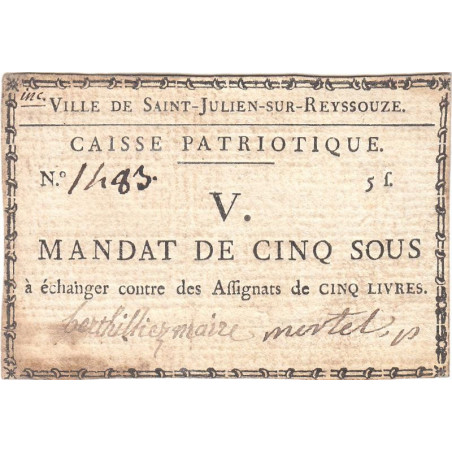 inc.
VILLE DE SAINT-JULIEN-SUR-REYSSOUZE.
CAISSE PATRIOTIQUE.
N.° 1483. 5 ſ.
V.
MANDAT DE CINQ SOUS
à échanger contre des Aſſignats de CINQ LIVRES.
maire